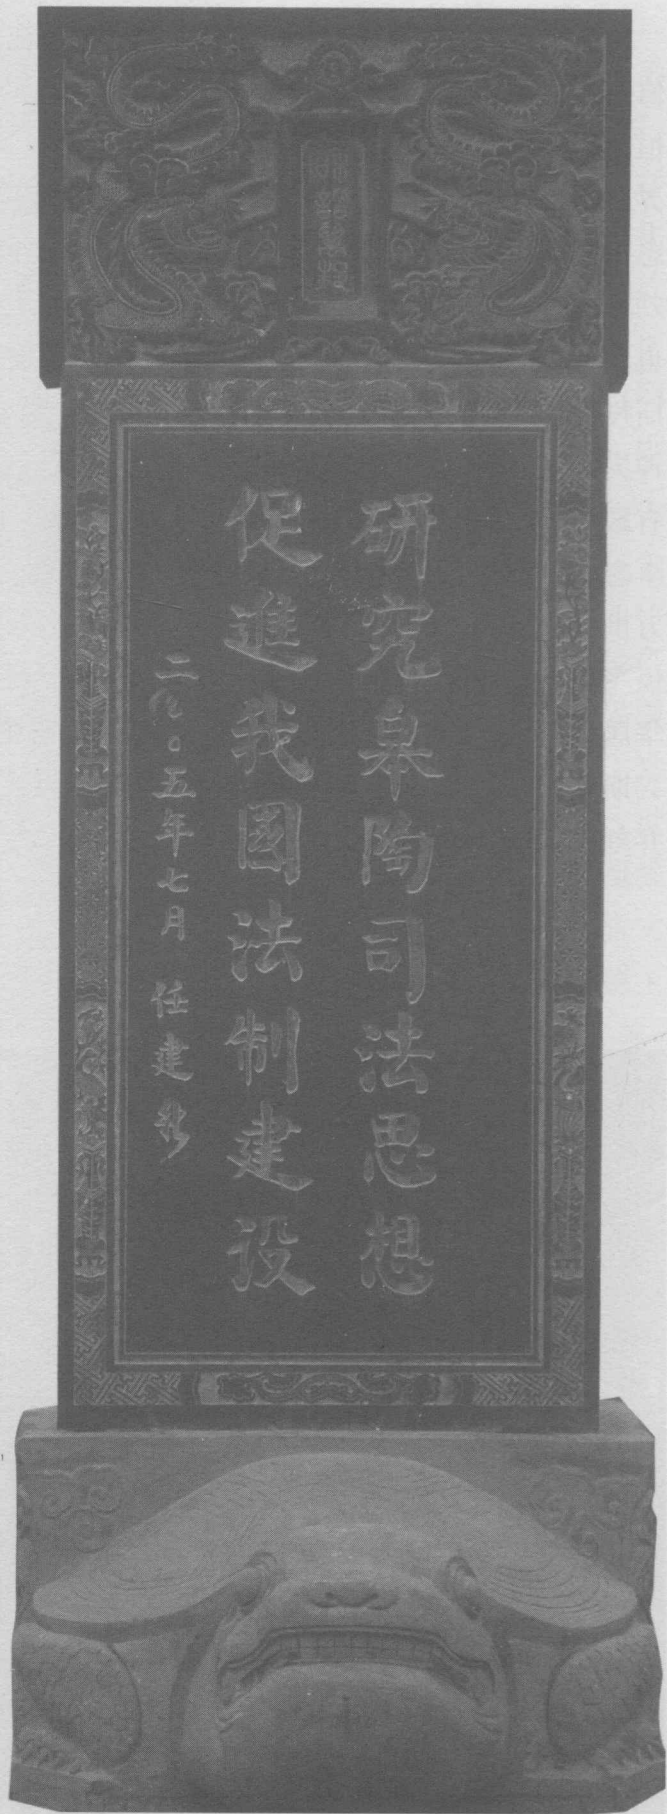 研究皋陶司法思想
促進我國法制建设
二〇〇五年七月 任建新